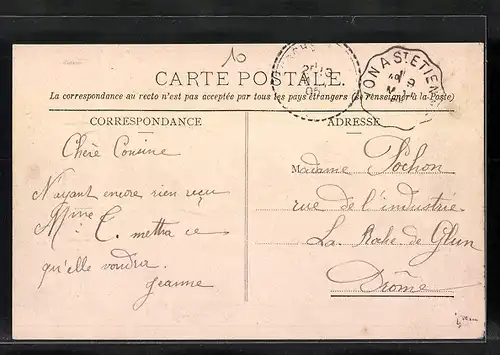 10
CARTE POSTALE.
La correspondance au recto n'est pas acceptée par tous les pays étrangers (Se renseigner à la Poste)
CORRESPONDANCE
Chère Cousine
N'ayant encore rien reçu
Mme C. mettra ce
qu'elle voudra.
Jeanne
ON A ST ETIEN
ADRESSE
Madame Pochon
rue de l'industrie
La Roche de Glun
Drôme